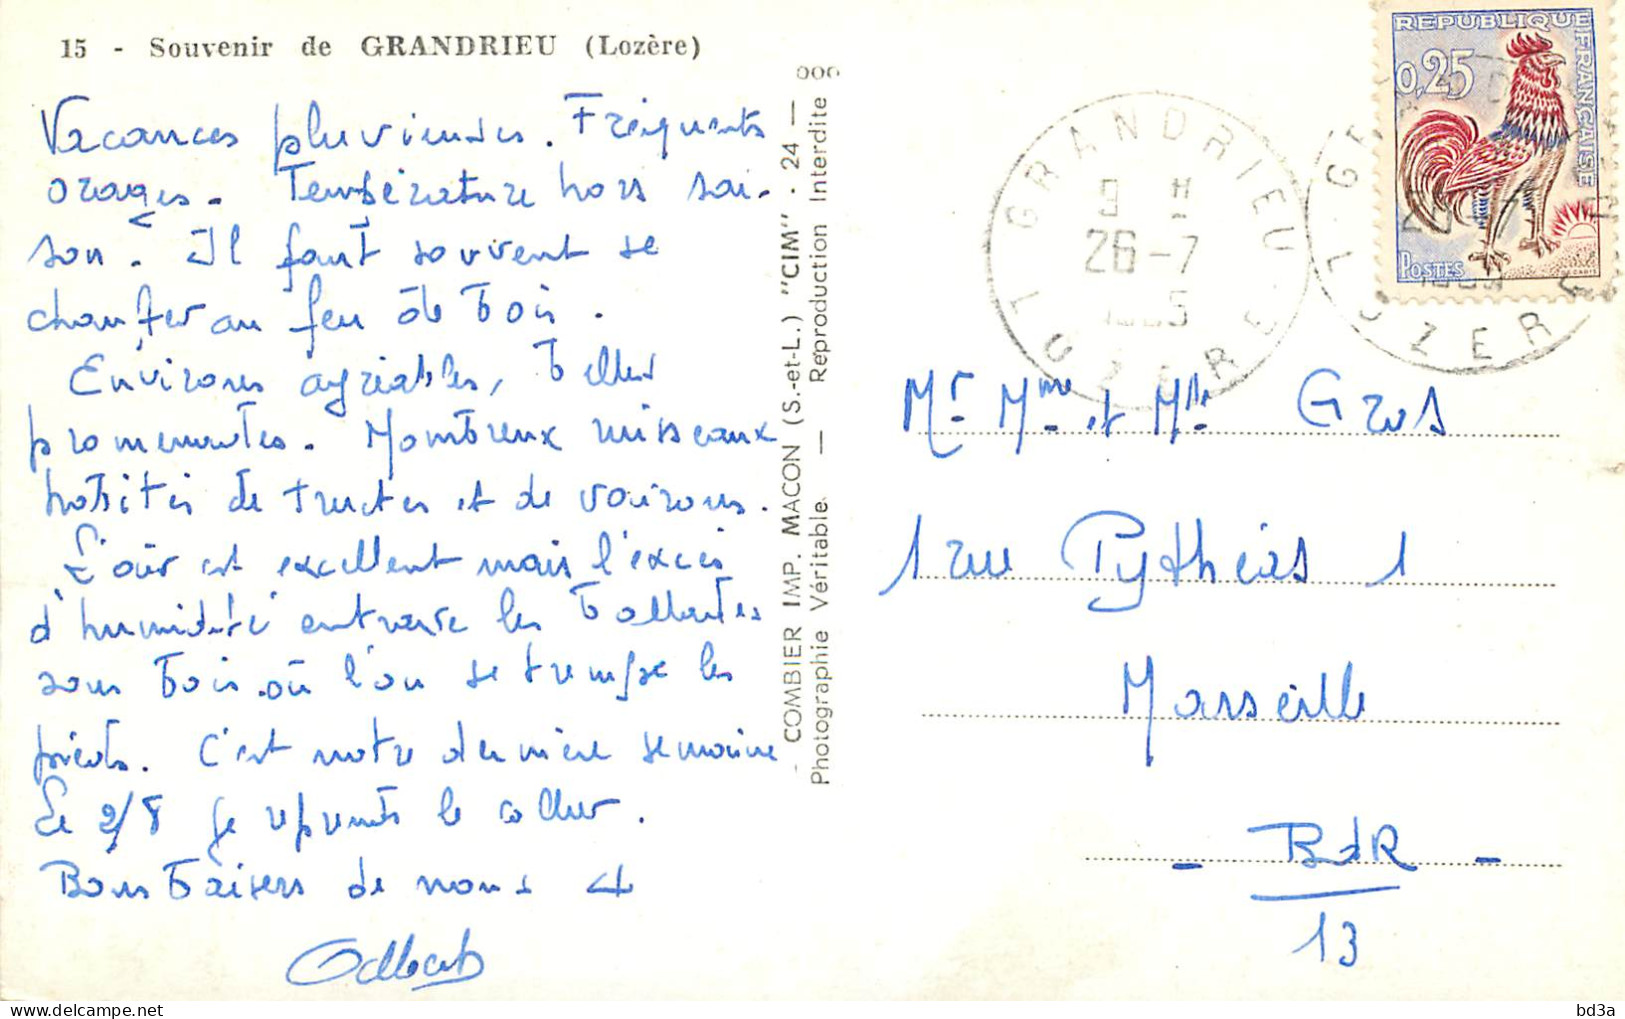 15 - Souvenir de GRANDRIEU (Lozère)
Vacances pluvieuses. Fréquents
orages. Température hors sai-
son. Il faut souvent se
chauffer au feu de bois.
Environs agréables, belles
promenades. Nombreux ruisseaux
habités de truites et de vairons.
L'air est excellent mais l'excès
d'humidité entrave les ballades
sous bois où l'on se trempe les
pieds. C'est notre dernière semaine
Le 2/8 je reprends le collier.
Bons baisers de nous 4
COMBIER IMP. MACON (S.-et-L.) "CIM" - 24 -
Photographie Véritable — Reproduction Interdite
REPUBLIQUE FRANÇAISE
0,25
POSTES
GRANDRIEU
9 H
26-7
LOZERE
GRANDRIEU
26-7
LOZERE
Mr Mme et Mlle Gros
1 rue Pythéas 1
Marseille
- BdR -
13
bd3a